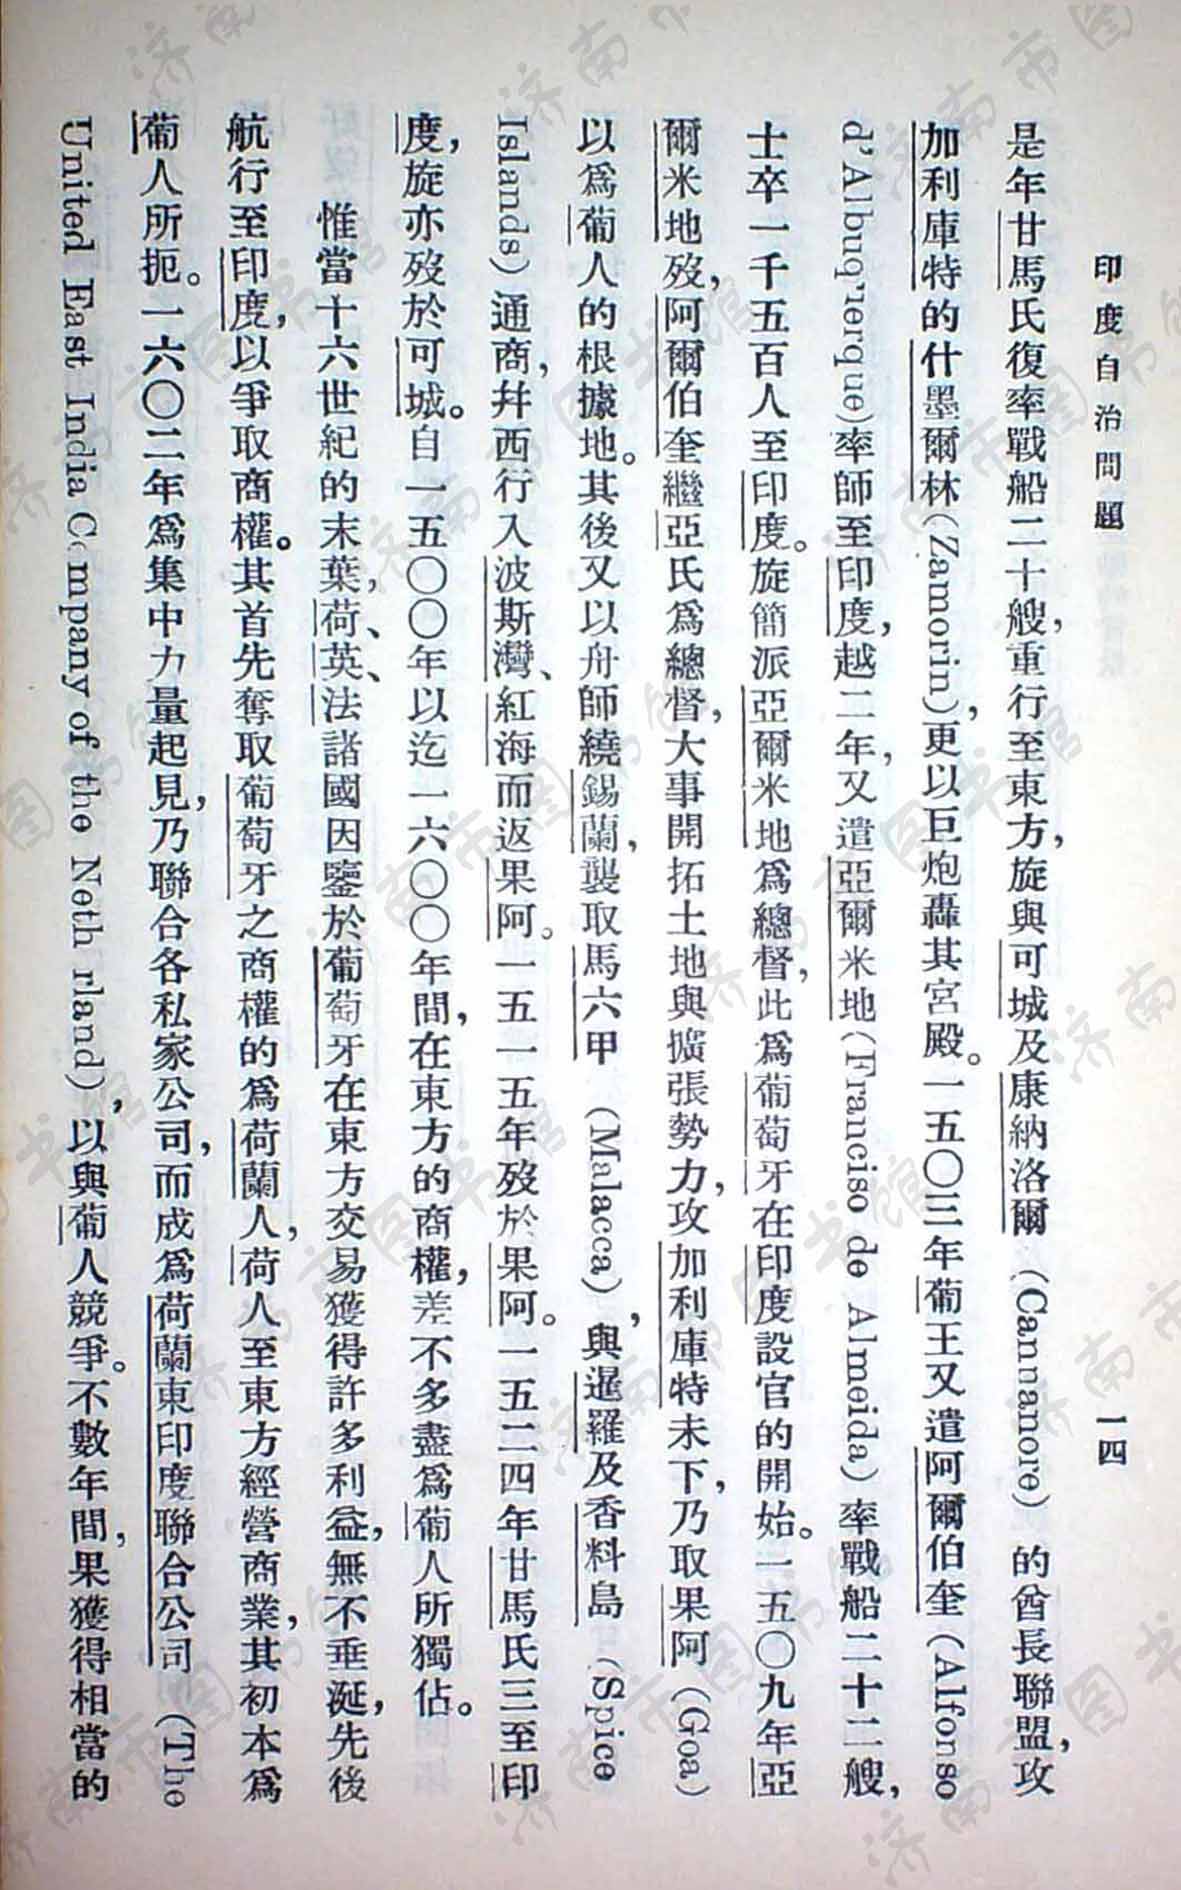 印度自治問題
一四
是年甘馬氏復率戰船二十艘，重行至東方，旋與可城及康納洛爾（Cannanore）的酋長聯盟，攻
加利庫特的什墨爾林（Zamorin），更以巨炮轟其宮殿。一五〇三年葡王又遣阿爾伯奎（Alfonso
d'Albuq'erque）率師至印度，越二年，又遣亞爾米地（Franciso de Almeida）率戰船二十二艘，
士卒一千五百人至印度。旋簡派亞爾米地爲總督，此爲葡萄牙在印度設官的開始。一五〇九年亞
爾米地歿，阿爾伯奎繼亞氏爲總督，大事開拓土地與擴張勢力，攻加利庫特未下，乃取果阿（Goa）
以爲葡人的根據地。其後又以舟師繞錫蘭，襲取馬六甲（Malacca），與暹羅及香料島（Spice
Islands）通商，并西行入波斯灣、紅海而返果阿。一五一五年歿於果阿。一五二四年甘馬氏三至印
度，旋亦歿於可城。自一五〇〇年以迄一六〇〇年間，在東方的商權，差不多盡爲葡人所獨佔。
惟當十六世紀的末葉，荷、英、法諸國因鑒於葡萄牙在東方交易獲得許多利益，無不垂涎，先後
航行至印度，以爭取商權。其首先奪取葡萄牙之商權的爲荷蘭人，荷人至東方經營商業，其初本爲
葡人所扼。一六〇二年爲集中力量起見，乃聯合各私家公司，而成爲荷蘭東印度聯合公司（The
United East India C mpany of the Neth rland），以與葡人競爭。不數年間，果獲得相當的
济南市图书馆